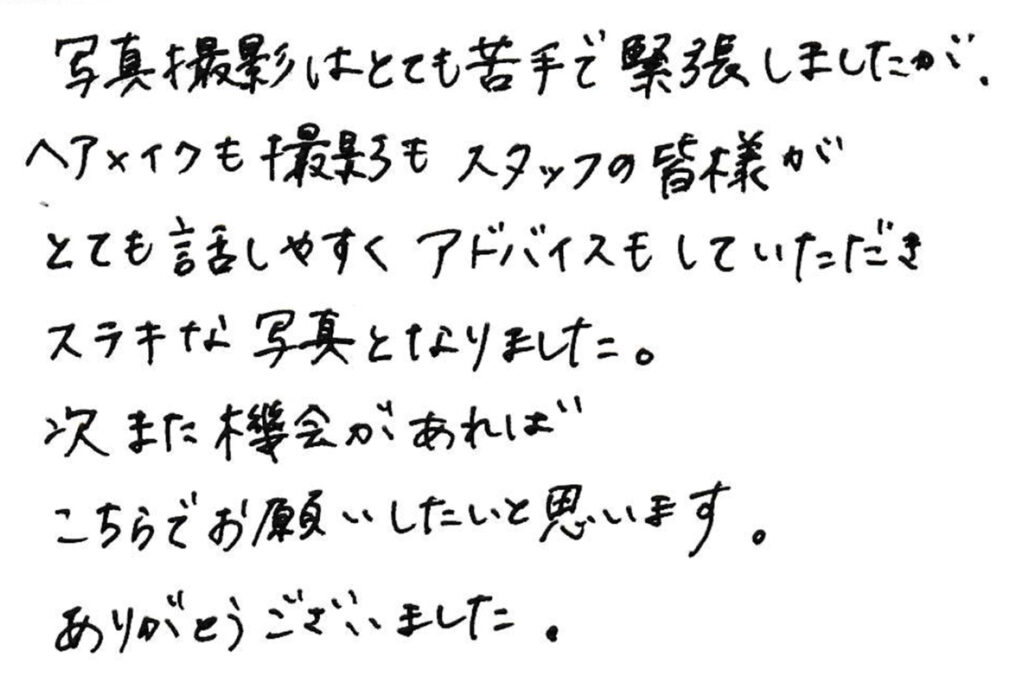 写真撮影はとても苦手で緊張しましたが、
ヘアメイクも撮影もスタッフの皆様が
とても話しやすくアドバイスもしていただき
ステキな写真となりました。
次また機会があれば
こちらでお願いしたいと思います。
ありがとうございました。